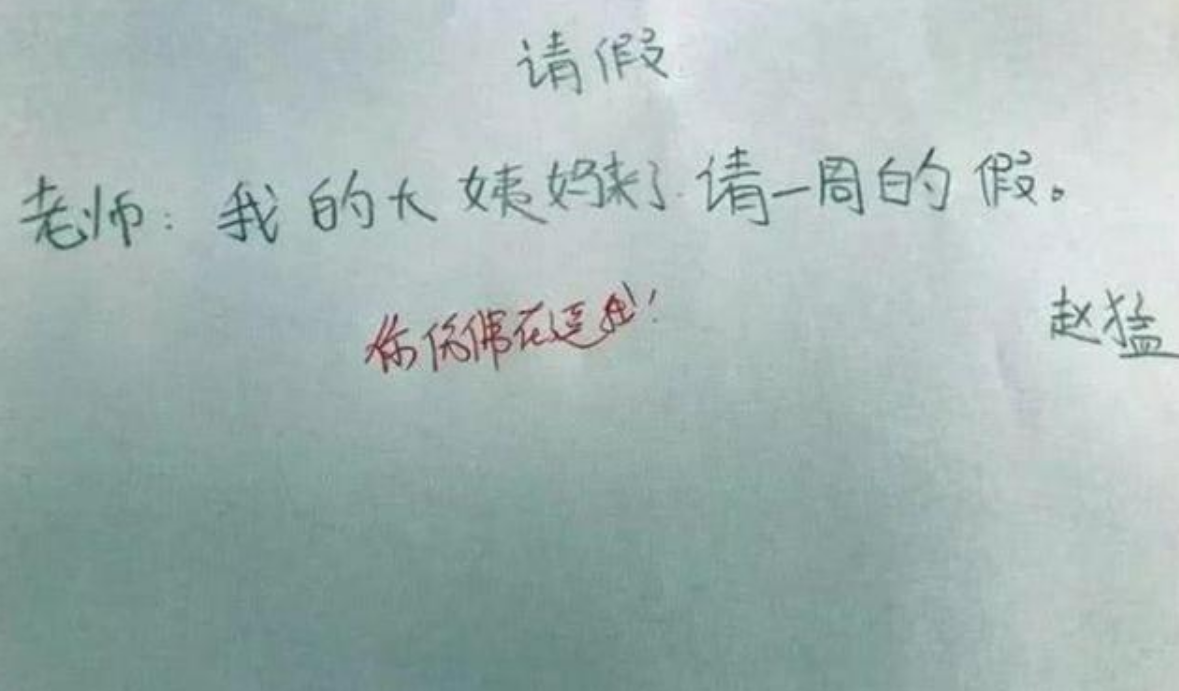 请假
老师：我的大姨妈来了请一周的假。
你侄儿在这!
赵猛